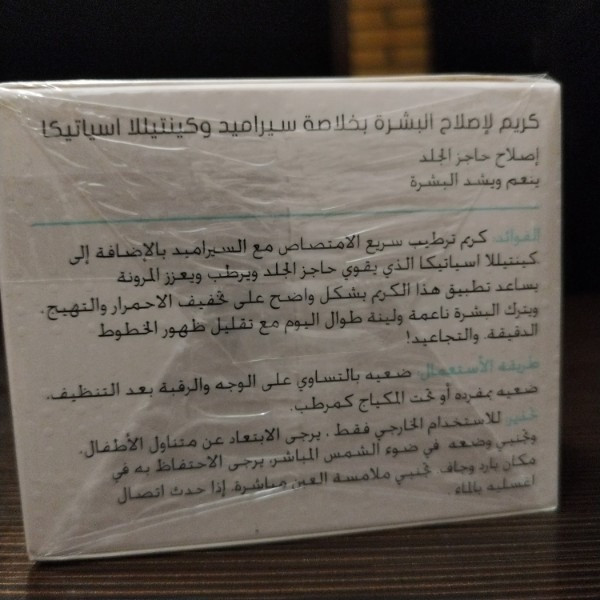 كريم لإصلاح البشرة بخلاصة سيراميد وكينتيللا اسياتيكا
إصلاح حاجز الجلد
ينعم ويشد البشرة
الفوائد: كريم ترطيب سريع الامتصاص مع السيراميد بالإضافة إلى
كينتيللا اسياتيكا الذي يقوي حاجز الجلد ويرطب ويعزز المرونة
يساعد تطبيق هذا الكريم بشكل واضح على تخفيف الاحمرار والتهيج.
ويترك البشرة ناعمة ولينة طوال اليوم مع تقليل ظهور الخطوط
الدقيقة. والتجاعيد!
طريقة الاستعمال: ضعيه بالتساوي على الوجه والرقبة بعد التنظيف.
ضعيه بمفرده أو تحت المكياج كمرطب.
تحذير: للاستخدام الخارجي فقط . يرجى الابتعاد عن متناول الأطفال.
وتجنبي وضعه في ضوء الشمس المباشر. يرجى الاحتفاظ به في
مكان بارد وجاف. تجنبي ملامسة العين مباشرة. إذا حدث اتصال
اغسليه بالماء.